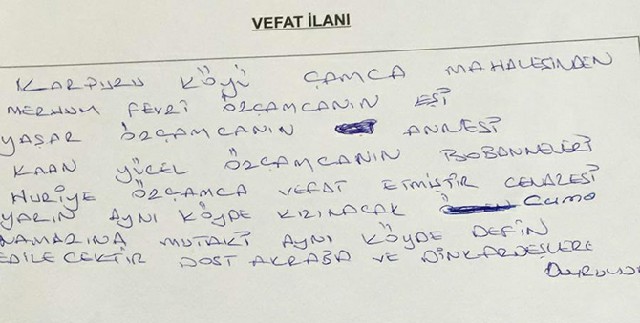 VEFAT İLANI
KARPUZU KÖYÜ ÇAMCA MAHALESİNDEN
MERHUM FEVZİ ÖZÇAMCANIN EŞİ
YAŞAR ÖZÇAMCANIN ANNESİ
KAAN YÜCEL ÖZÇAMCANIN BOBANNELERİ
HURİYE ÖZÇAMCA VEFAT ETMİŞTİR CENAZESİ
YARIN AYNI KÖYDE KILINACAK CUMA
NAMAZINA MUTAKİ AYNI KÖYDE DEFİN
EDİLECEKTİR DOST AKRABA VE DİNKARDEŞLERE